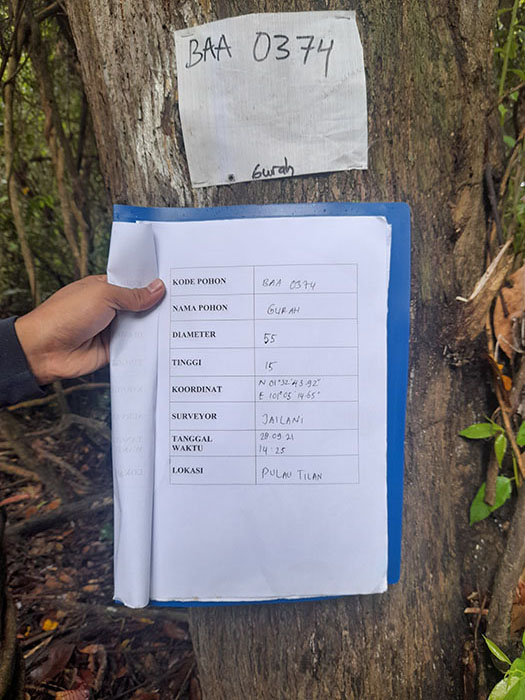 BAA 0374
Gurah
KODE POHON BAA 0374
NAMA POHON GURAH
DIAMETER 55
TINGGI 15
KOORDINAT N 01°32'43.92"
E 101°05'14.65"
SURVEYOR JAILANI
TANGGAL 28.09.21
WAKTU 14:25
LOKASI PULAU TILAN